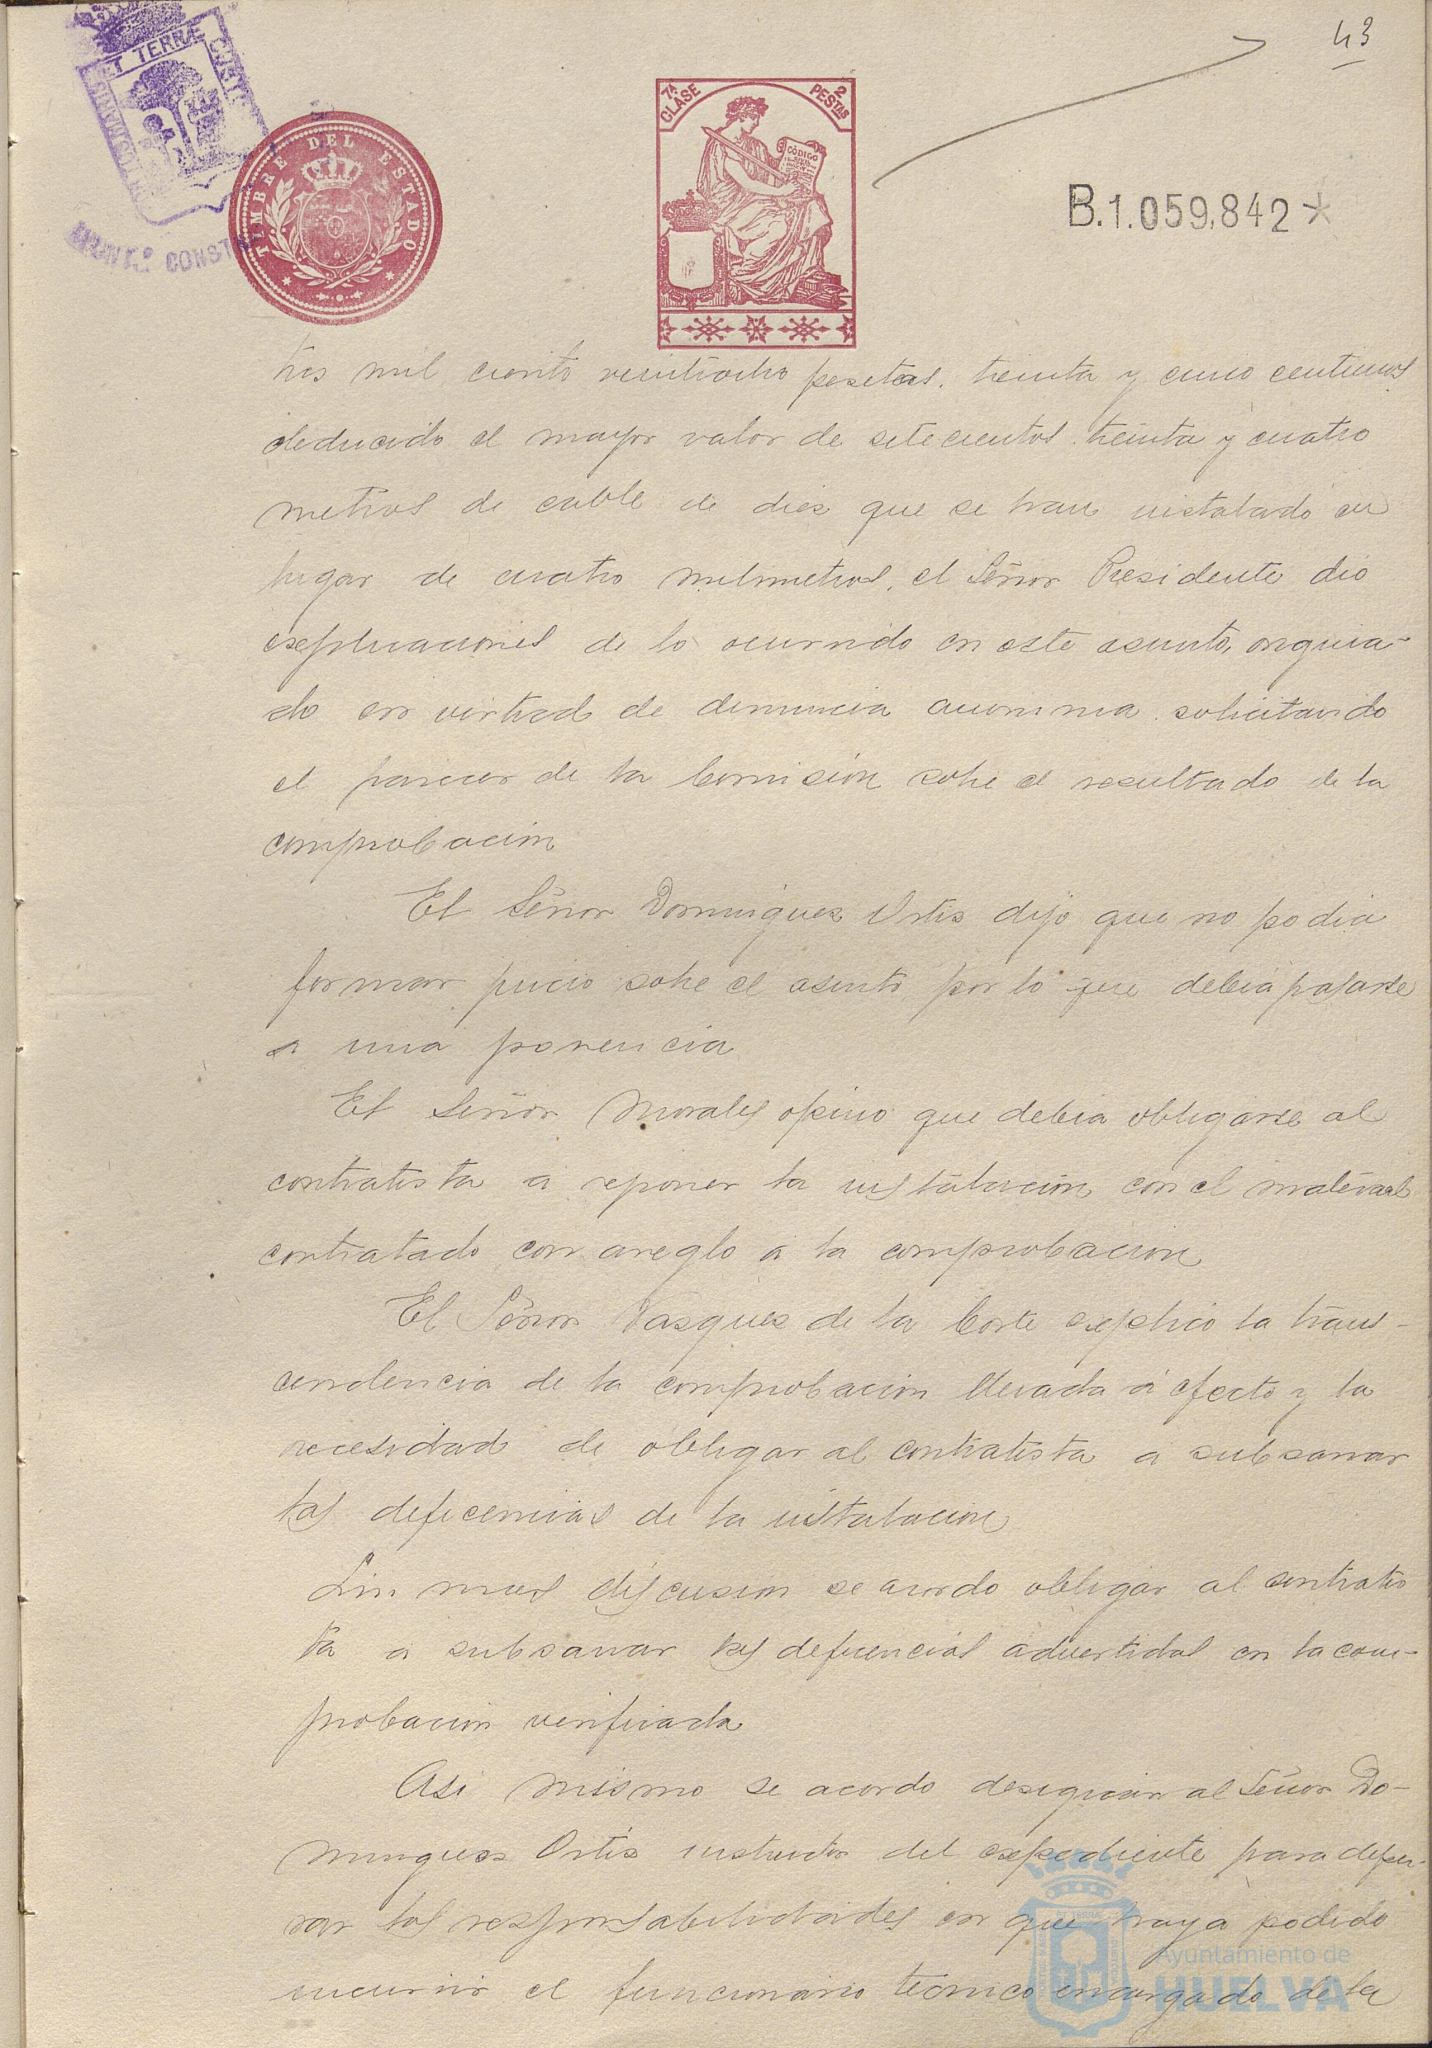 43
ET TERRÆ CUSTO
PORTUS MARIS
MUNTº CONST
TIMBRE DEL ESTADO
7ª CLASE
2 PESTAS
CÓDIGO
B.1.059,842*
tres mil ciento veintiocho pesetas, treinta y cinco centimos
deducido el mayor valor de setecientos treinta y cuatro
metros de cable de diez que se han instalado en
lugar de cuatro milimetros, el Señor Presidente dio
explicaciones de lo ocurrido en este asunto, origina-
do en virtud de denuncia anonima solicitando
el parecer de la Comisión sobre el resultado de la
comprobacion
El Señor Dominguez Ortiz dijo que no podia
formar juicio sobre el asunto por lo que debia pasarse
a una ponencia
El Señor Morales opino que debia obligarse al
contratista a reponer la instalacion con el material
contratado con areglo a la comprobacion
El Señor Vazquez de la Corte explico la trans-
cendencia de la comprobacion llevada á efecto y la
necesidad de obligar al contratista a subsanar
las deficencias de la instalacion
Sin mas discusion se acordo obligar al contratis
ta a subsanar las deficiencias advertidas en la com-
probacion verificada
Asi mismo se acordo designar al Señor Do-
minguez Ortiz instructor del expediente para depu-
rar las responsabilidades en que haya podido
incurrir el funcionario tecnico encargado de la
Ayuntamiento de
HUELVA